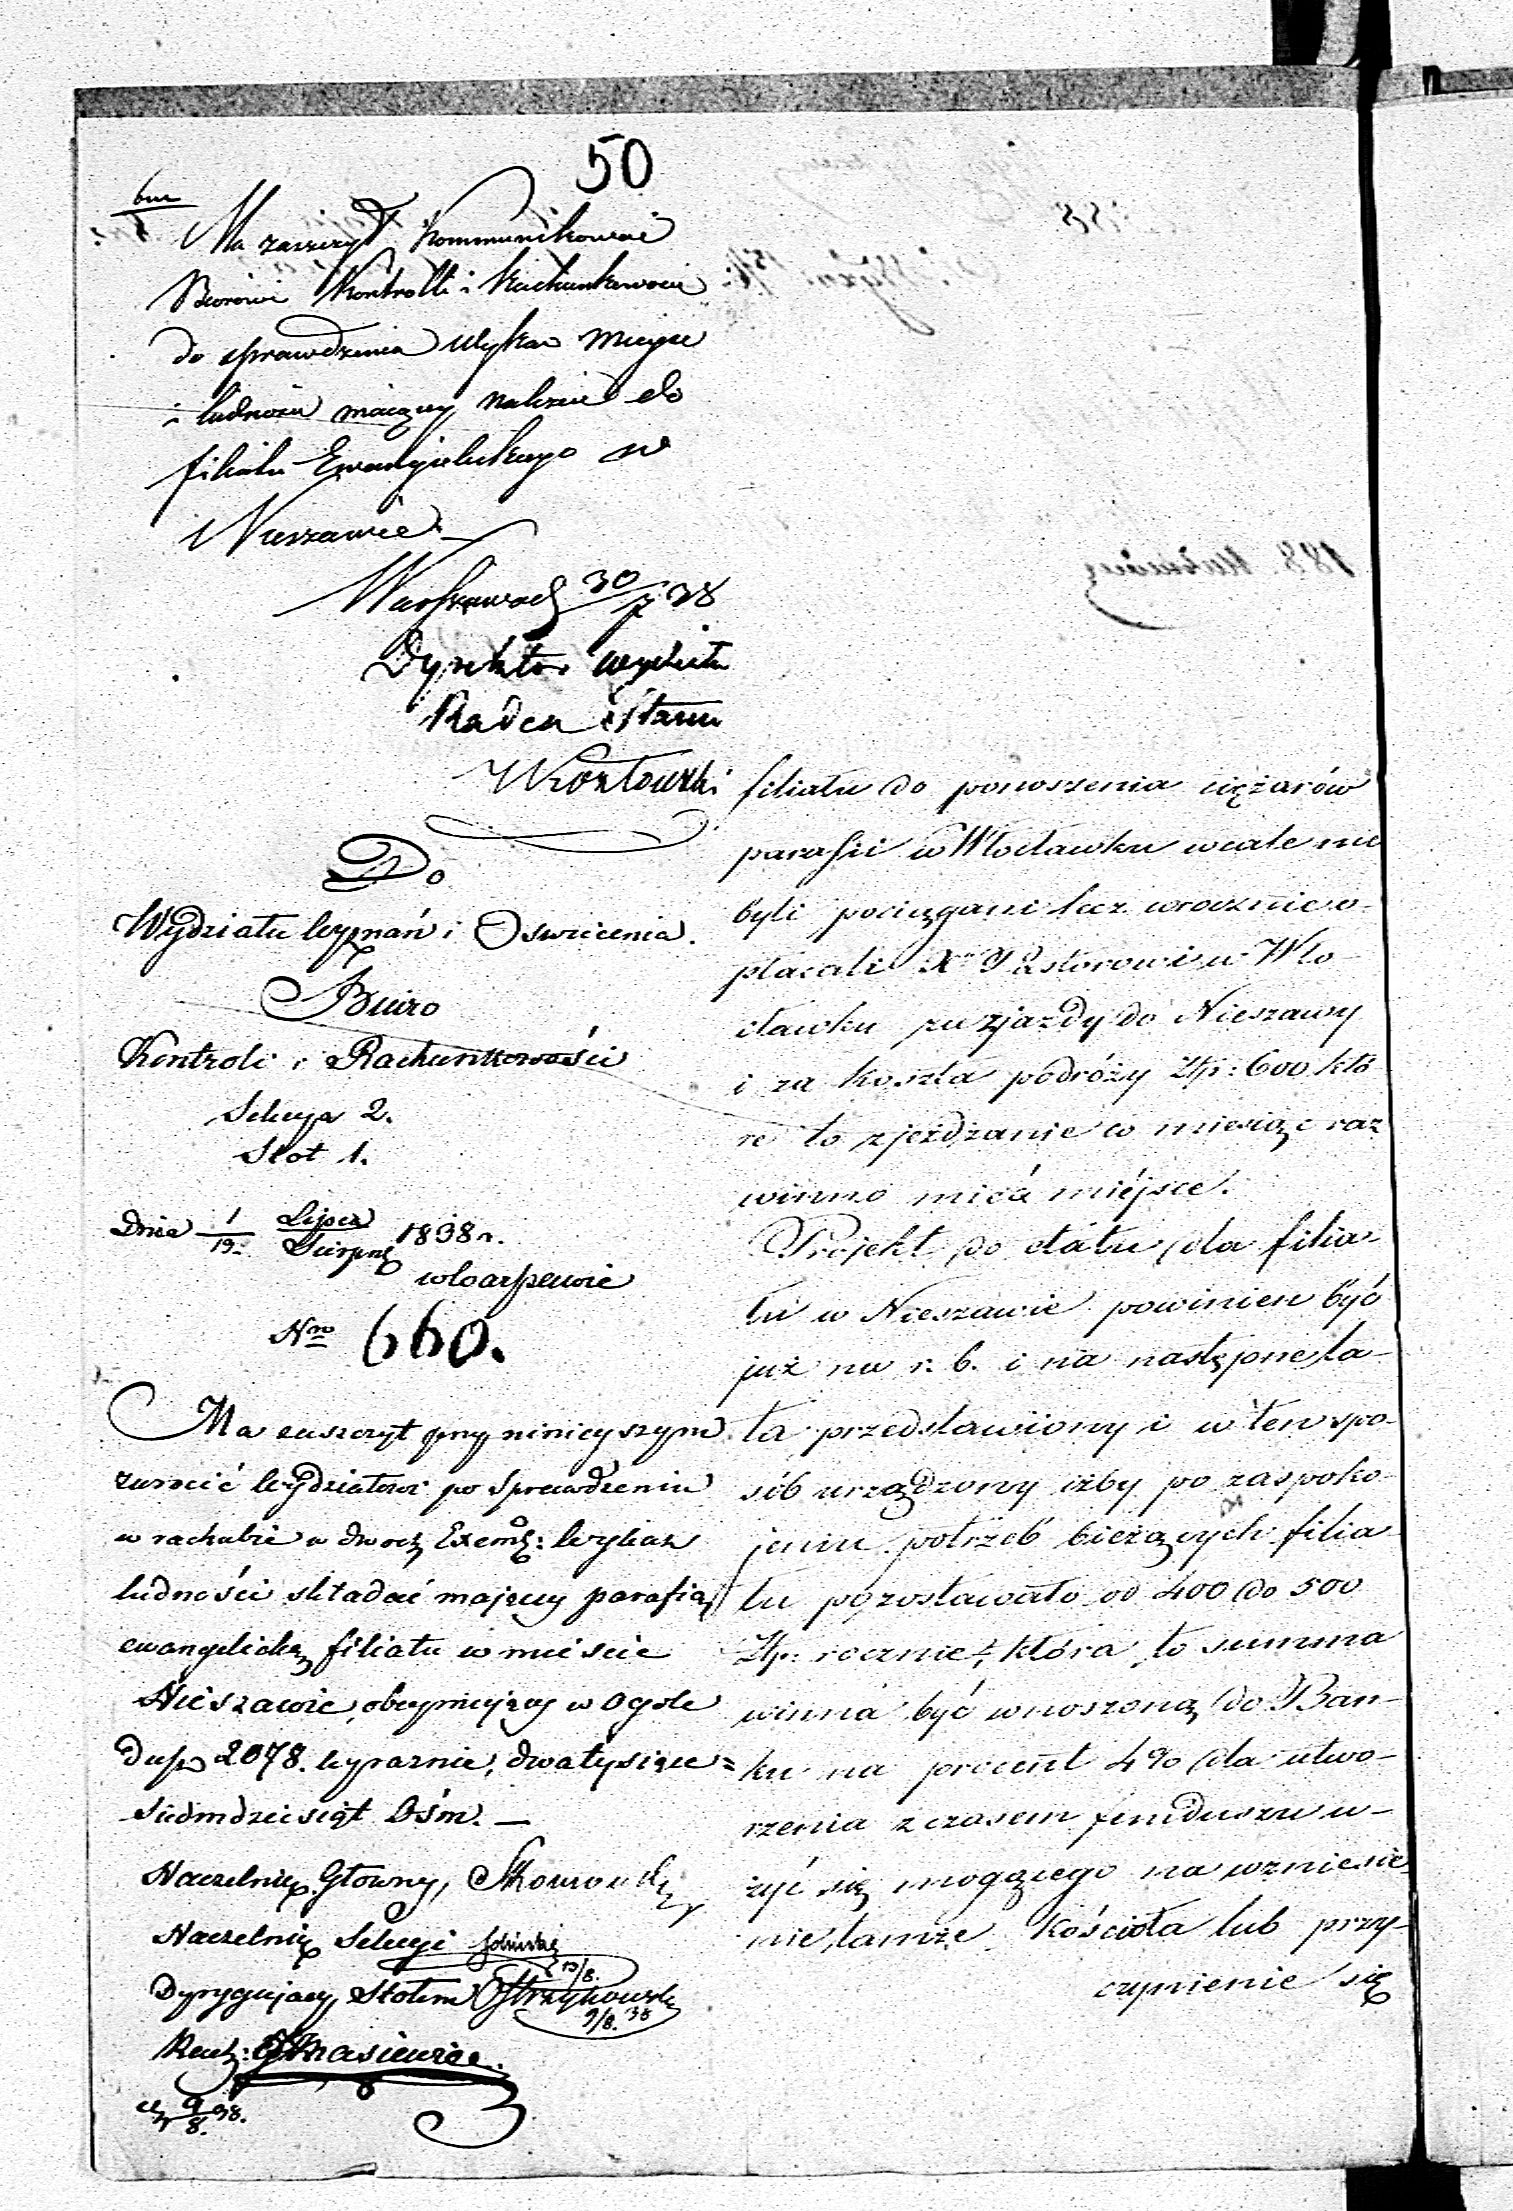 50
Ma zaszczyt Kommunikować
Biórowi Kontrolli i Rachunkowości
do sprawdzenia Wykaz Mieysc
i ludności maiącey należeć do
filiału Ewangielickiego w
Nieszawie.
Warszawa d. 30/7 38
Dyrektor Wydziału
Radca Stanu
Do
Wydziału Wyznań i Oswiecenia.
Biuro
Kontroli i Rachunkowości
Sekcya 2.
Stół 1.
Dnia 1/19 Lipca/Sierpnia 1838 r.
w Warszawie
Nro 660.
Ma zaszczyt przy niniejszym
zwrócić Wydziałowi po Sprawdzeniu
w rachubie w dwóch Exempl: Wykaz
ludności składać mającey parafią
ewangelicką filiału w mieście
Nieszawie, obeymujący w Ogóle
dusz 2078. wyraźnie, dwa tysiące
siedmdziesiąt Ośm. —
Naczelnik Główny,
Naczelnik Sekcyi
10/8.
Dyrygujący Stołem
9/8. 38
Rach:
9/8. 38.
filiału do ponoszenia ciężarów
parafii w Włocławku wcale nie
byli pociągani lecz wrocznie o-
płacali Xu Pastorowi w Wło-
cławku za zjazdy do Nieszawy
i za koszta podróży Złp: 600 któ
re to zjeżdżanie co miesiąc raz
winno mieć miéjsce.
Projekt do etatu dla filia-
łu w Nieszawie powinien być
już na r. b. i na następne la-
ta przedstawiony i w ten spo-
sób urządzony iżby po zaspoko-
jeniu potrzeb bieżących filia-
łu pozostawało od 400 do 500
Złp: rocznie, która to summa
winna być wnoszoną do Ban-
ku na procent 4% dla utwo-
rzenia z czasem funduszu u-
żyć się mogącego na wzniesie
nie tamże Kościoła lub przy-
czynienie się